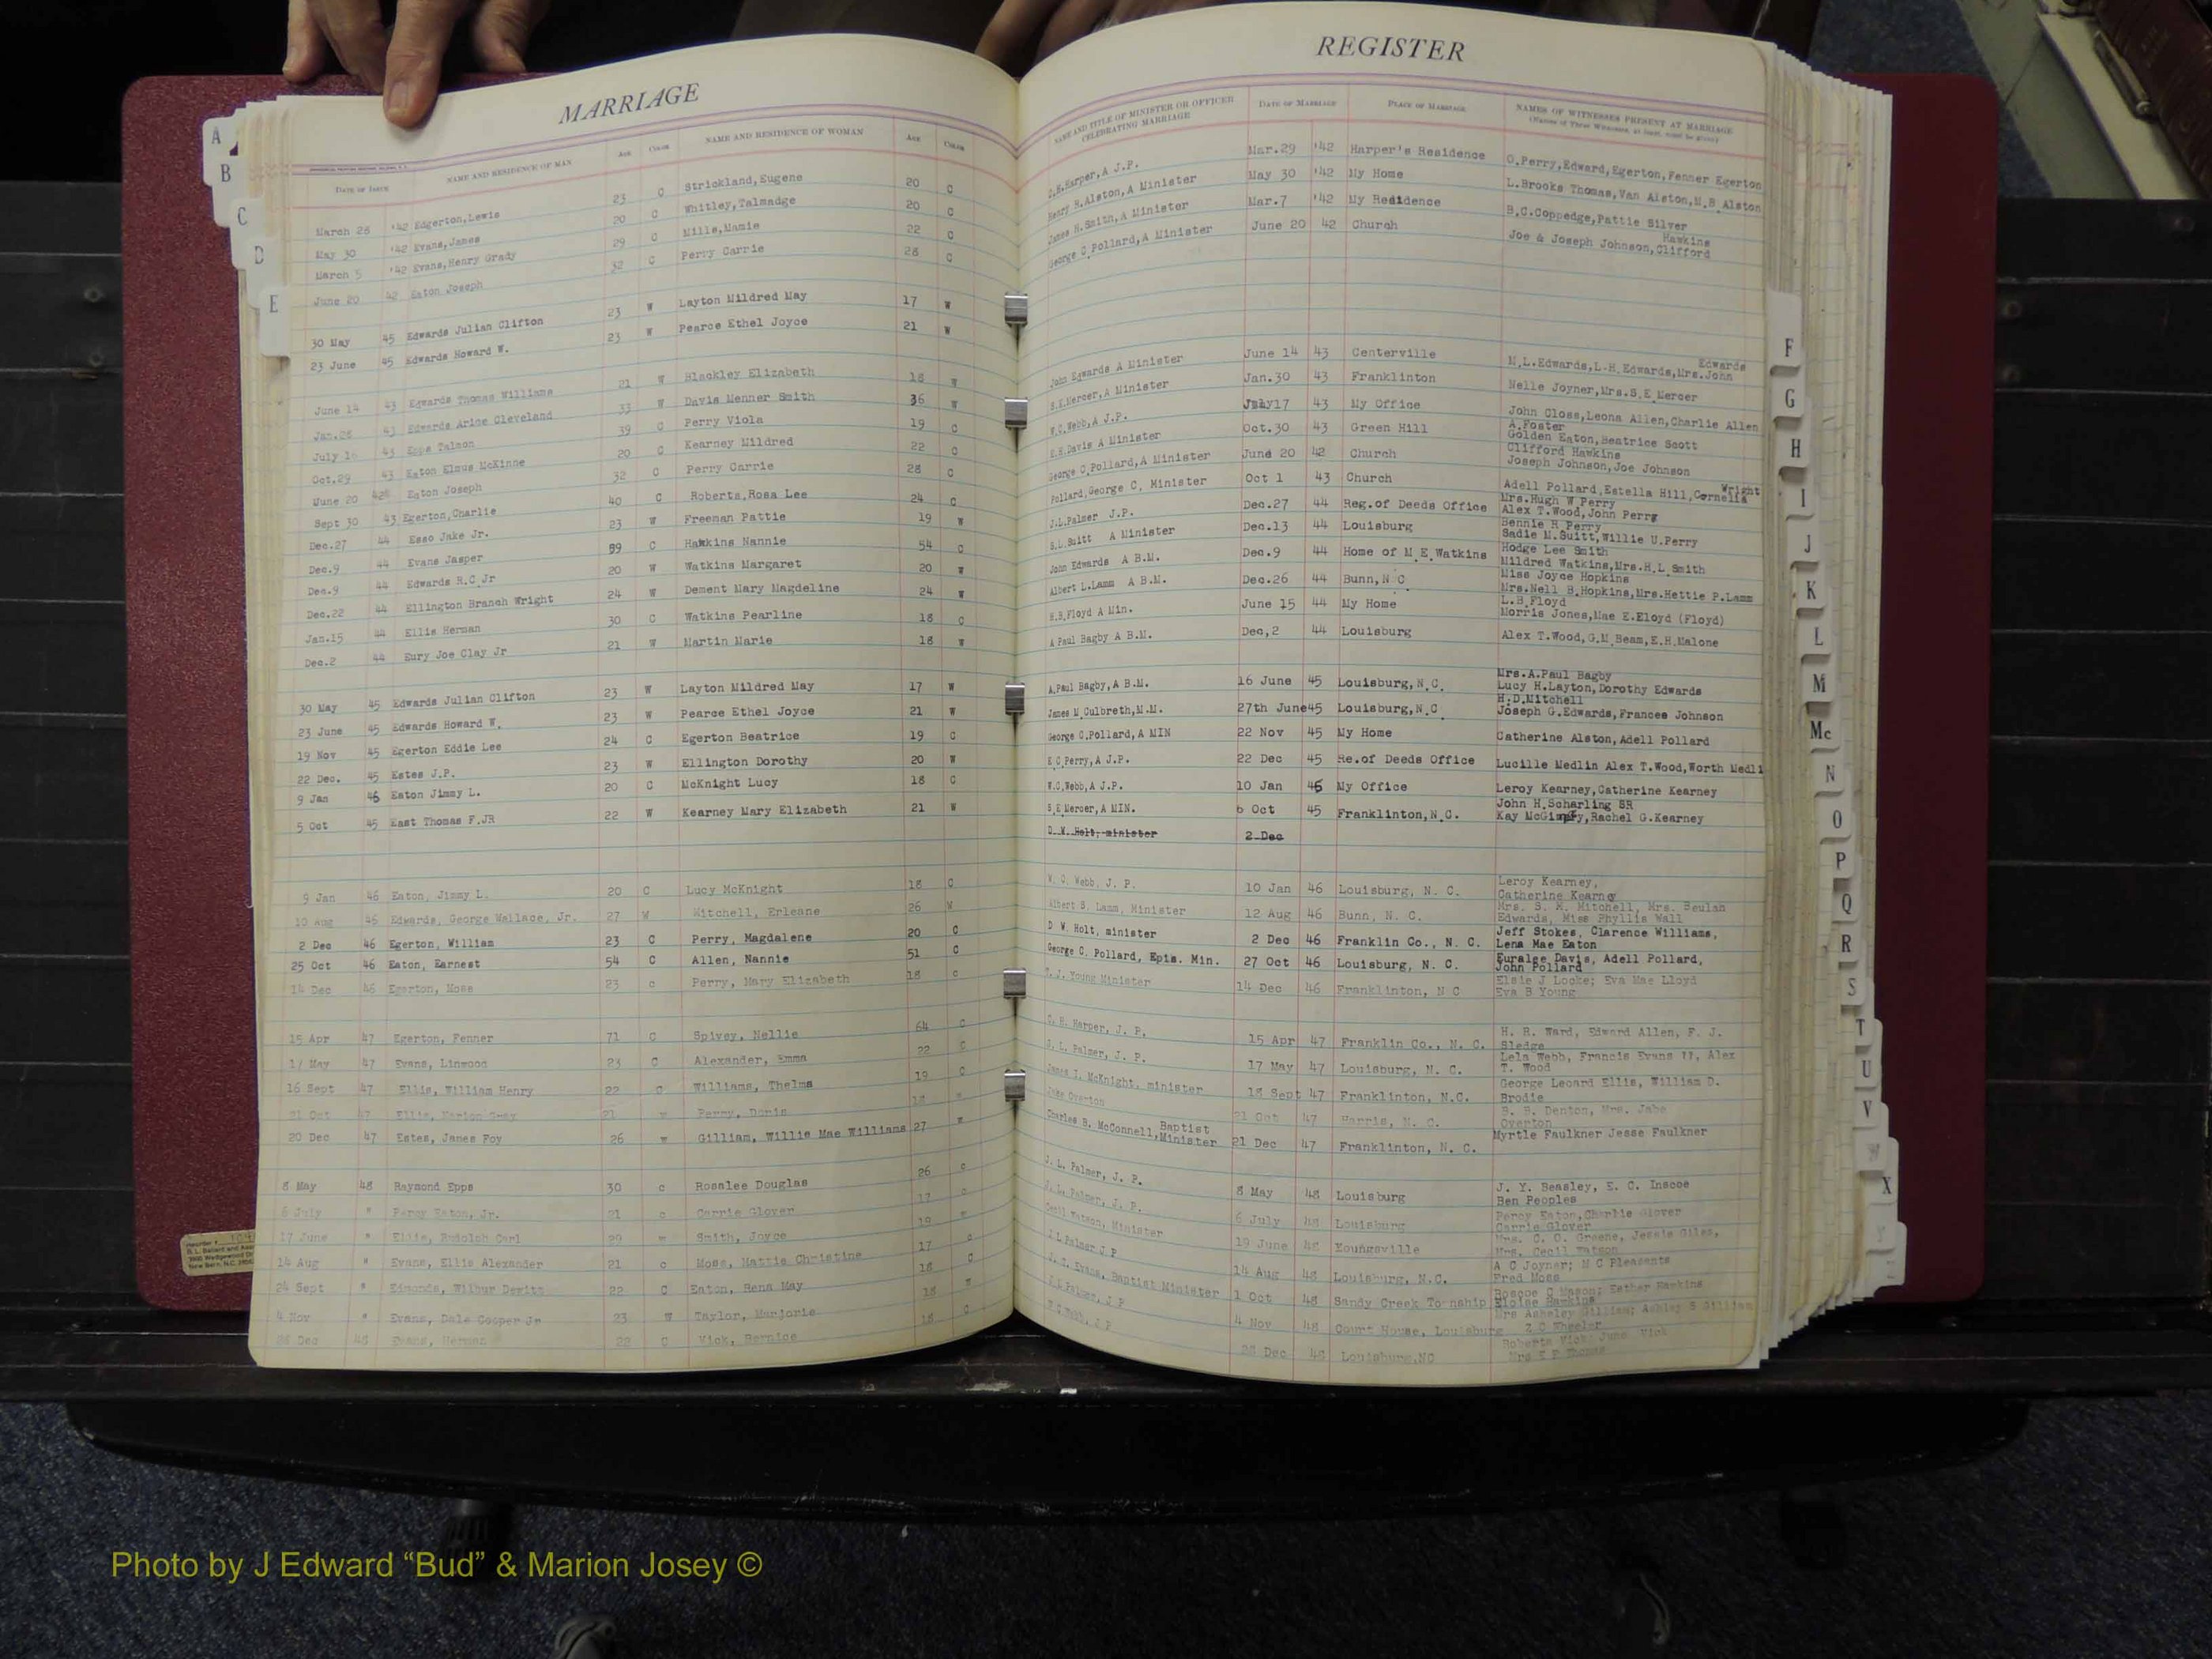 MARRIAGE
REGISTER
DATE OF ISSUE NAME AND RESIDENCE OF MAN AGE COLOR NAME AND RESIDENCE OF WOMAN AGE COLOR NAME AND TITLE OF MINISTER OR OFFICER CELEBRATING MARRIAGE DATE OF MARRIAGE PLACE OF MARRIAGE NAMES OF WITNESSES PRESENT AT MARRIAGE
March 28 '42 Edgerton,Lewis 23 C Strickland,Eugene 20 C Harper,A J.P. Mar.29 '42 Harper's Residence O.Perry,Edward,Egerton,Fenner Egerton
May 30 '42 Evans,James 20 C Whitley,Talmadge 20 C Henry R.Alston,A Minister May 30 '42 My Home L.Brooks Thomas,Van Alston,M.B.Alston
March 5 '42 Evans,Henry Grady 29 C Mills,Mamie 22 C James H.Smith,A Minister Mar.7 '42 My Residence B.C.Coppedge,Pattie Silver
June 20 42 Eaton Joseph 32 C Perry Carrie 28 C George C.Pollard,A Minister June 20 42 Church Joe & Joseph Johnson,Clifford Hawkins
30 May 45 Edwards Julian Clifton 23 W Layton Mildred May 17 W
23 June 45 Edwards Howard W. 23 W Pearce Ethel Joyce 21 W
June 14 43 Edwards Thomas Williams 21 W Blackley Elizabeth 18 W John Edwards A Minister June 14 43 Centerville M.L.Edwards,L.H.Edwards,Mrs.John Edwards
Jan.28 43 Edwards Arice Cleveland 33 W Davis Menner Smith 36 W S.E.Mercer,A Minister Jan.30 43 Franklinton Nelle Joyner,Mrs.S.E.Mercer
July 16 43 Epps Talmon 39 C Perry Viola 19 C W.C.Webb,A J.P. July17 43 My Office John Closs,Leona Allen,Charlie Allen
Oct.29 43 Eaton Elmus McKinne 20 C Kearney Mildred 22 C Davis A Minister Oct.30 43 Green Hill A.Foster Golden Eaton,Beatrice Scott
June 20 42 Eaton Joseph 32 C Perry Carrie 28 C George C.Pollard,A Minister June 20 42 Church Clifford Hawkins Joseph Johnson,Joe Johnson
Sept 30 43 Egerton,Charlie 40 C Roberts,Rosa Lee 24 C Pollard,George C, Minister Oct 1 43 Church Adell Pollard,Estella Hill,Cornelia Wright
Dec.27 44 Esso Jake Jr. 23 W Freeman Pattie 19 W J.L.Palmer J.P. Dec.27 44 Reg.of Deeds Office Mrs.Hugh W.Perry Alex T.Wood,John Perry
Dec.9 44 Evans Jasper 59 C Hawkins Nannie 54 C Suitt A Minister Dec.13 44 Louisburg Bennie R Perry Sadie M.Suitt,Willie U.Perry
Dec.9 44 Edwards R.C.Jr 20 W Watkins Margaret 20 W John Edwards A B.M. Dec.9 44 Home of M.E.Watkins Hodge Lee Smith Mildred Watkins,Mrs.H.L.Smith
Dec.22 44 Ellington Branch Wright 24 W Dement Mary Magdeline 24 W Albert L.Lamm A B.M. Dec.26 44 Bunn,N.C. Miss Joyce Hopkins Mrs.Nell B.Hopkins,Mrs.Hettie P.Lamm
Jan.15 44 Ellis Herman 30 C Watkins Pearline 18 C Floyd A Min. June 15 44 My Home L.B.Floyd Morris Jones,Mae E.Eloyd (Floyd)
Dec.2 44 Eury Joe Clay Jr 21 W Martin Marie 18 W A Paul Bagby A B.M. Dec,2 44 Louisburg Alex T.Wood,G.M.Beam,E.H.Malone
30 May 45 Edwards Julian Clifton 23 W Layton Mildred May 17 W A.Paul Bagby,A B.M. 16 June 45 Louisburg,N.C. Mrs.A.Paul Bagby Lucy H.Layton,Dorothy Edwards
23 June 45 Edwards Howard W. 23 W Pearce Ethel Joyce 21 W James M Culbreth,M.M. 27th June45 Louisburg,N.C H.D.Mitchell Joseph G.Edwards,Frances Johnson
19 Nov 45 Egerton Eddie Lee 24 C Egerton Beatrice 19 C George C.Pollard,A MIN 22 Nov 45 My Home Catherine Alston,Adell Pollard
22 Dec. 45 Estes J.P. 23 W Ellington Dorothy 20 W Perry,A J.P. 22 Dec 45 Re.of Deeds Office Lucille Medlin Alex T.Wood,Worth Medli
9 Jan 46 Eaton Jimmy L. 20 C McKnight Lucy 18 C W.C.Webb,A J.P. 10 Jan 46 My Office Leroy Kearney,Catherine Kearney
5 Oct 45 East Thomas F.JR 22 W Kearney Mary Elizabeth 21 W S.E.Mercer,A MIN. 6 Oct 45 Franklinton,N.C. John H.Scharling SR Kay McGimpfy,Rachel G.Kearney
D. W. Holt, minister 2 Dec
9 Jan 46 Eaton, Jimmy L. 20 C Lucy McKnight 18 C W. C. Webb, J. P. 10 Jan 46 Louisburg, N. C. Leroy Kearney, Catherine Kearney
10 Aug 46 Edwards, George Wallace, Jr. 27 W Mitchell, Erleane 26 W Albert S. Lamm, Minister 12 Aug 46 Bunn, N. C. Mrs. S. R. Mitchell, Mrs. Beulah Edwards, Miss Phyllis Wall
2 Dec 46 Egerton, William 23 C Perry, Magdalene 20 C D W. Holt, minister 2 Dec 46 Franklin Co., N. C. Jeff Stokes, Clarence Williams, Lena Mae Eaton
25 Oct 46 Eaton, Earnest 54 C Allen, Nannie 51 C George C. Pollard, Epis. Min. 27 Oct 46 Louisburg, N. C. Euralge Davis, Adell Pollard, John Pollard
14 Dec 46 Egerton, Mose 23 c Perry, Mary Elizabeth 18 c Young Minister 14 Dec 46 Franklinton, N C Elsie J Locke; Eva Mae Lloyd Eva B Young
15 Apr 47 Egerton, Fenner 71 C Spivey, Nellie 64 C Harper, J. P. 15 Apr 47 Franklin Co., N. C. H. R. Ward, Edward Allen, F. J. Sledge
17 May 47 Evans, Linwood 23 C Alexander, Emma 22 C J. L. Palmer, J. P. 17 May 47 Louisburg, N. C. Lela Webb, Francis Evans, Alex T. Wood
16 Sept 47 Ellis, William Henry 22 C Williams, Thelma 19 C James I. McKnight, minister 18 Sept 47 Franklinton, N.C. George Leoard Ellis, William D. Brodie
21 Oct 47 Ellis, Marion Gray 21 w Perry, Doris 18 w Overton 21 Oct 47 Harris, N. C. B. B. Denton, Mrs. Jabe Overton
20 Dec 47 Estes, James Foy 26 w Gilliam, Willie Mae Williams 27 w Charles B. McConnell, Baptist Minister 21 Dec 47 Franklinton, N. C. Myrtle Faulkner Jesse Faulkner
8 May 48 Raymond Epps 30 c Rosalee Douglas 26 c J. L. Palmer, J. P. 8 May 48 Louisburg J. Y. Beasley, E. C. Inscoe Ben Peoples
6 July " Percy Eaton, Jr. 21 c Carrie Glover 17 c J. L. Palmer, J. P. 6 July 48 Louisburg Percy Eaton,Charlie Glover Carrie Glover
17 June " Ellis, Rudolph Carl 29 w Smith, Joyce 19 w Cecil Watson, Minister 19 June 48 Youngsville Mrs. C. O. Greene, Jessie Giles, Mrs. Cecil Watson
14 Aug " Evans, Ellis Alexander 21 c Moss, Mattie Christine 17 c J L Palmer J P 14 Aug 48 Louisburg, N.C. A C Joyner; M C Pleasants Fred Moss
24 Sept " Edmonds, Wilbur Dewitt 22 C Eaton, Rena May 18 C Evans, Baptist Minister 1 Oct 48 Sandy Creek Township Roscoe C Mason; Esther Hawkins Eloise Hawkins
4 Nov " Evans, Dale Cooper Jr 23 W Taylor, Marjorie 18 W J L Palmer, J P 4 Nov 48 Court House, Louisburg Mrs Asheley Gilliam; Ashley S Gilliam Z C Wheeler
28 Dec 48 Evans, Herman 22 C Vick, Bernice 18 C Webb, J P 28 Dec 48 Louisburg,NC Roberta Vick June Vick
A
B
C
D
E
F
G
H
I
J
K
L
M
Mc
N
O
P
Q
R
S
T
U
V
W
X
Y
Z
Photo by J Edward “Bud” & Marion Josey ©